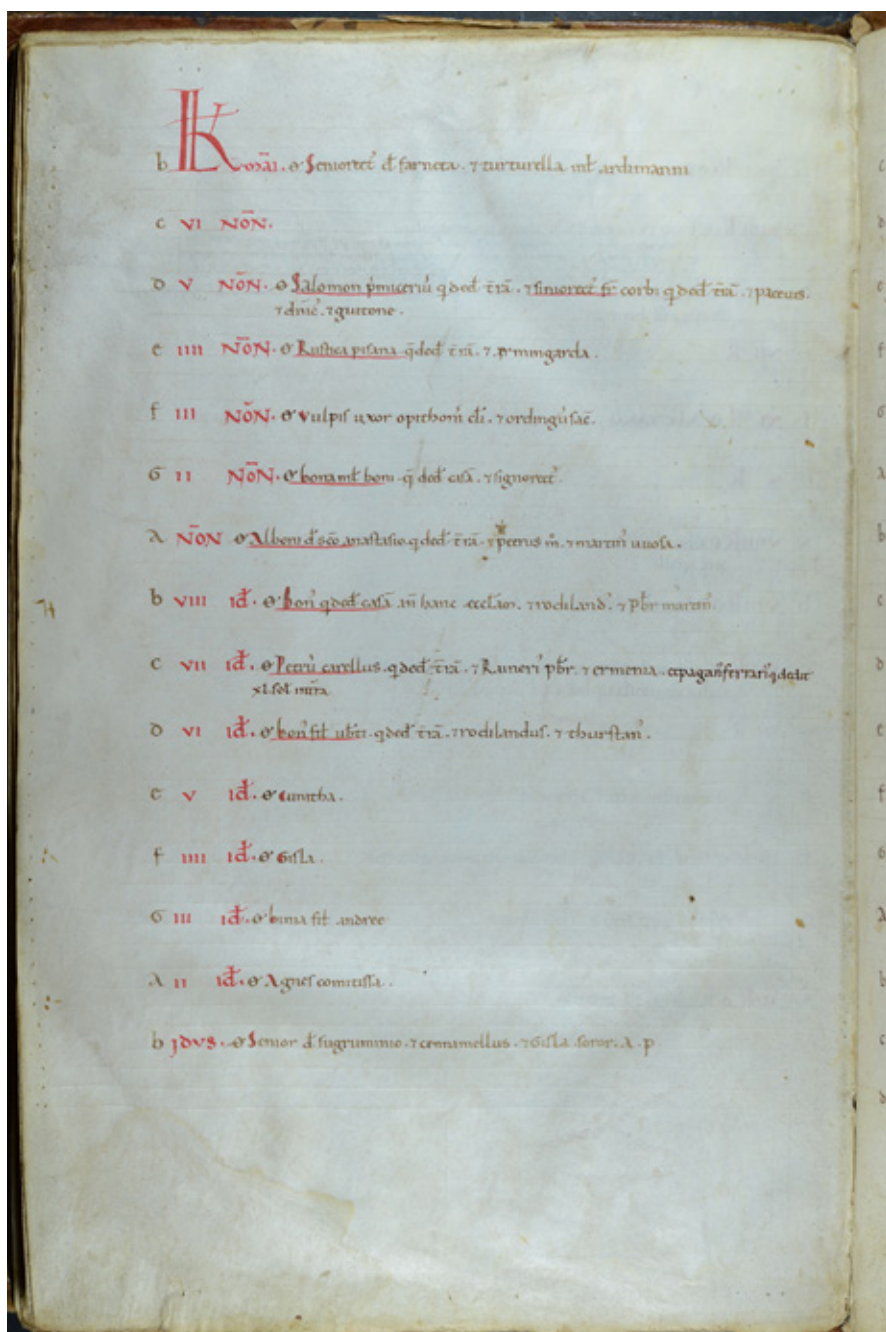 b KL mai. o Seniorect' d' farneta. ⁊ turturella mł ardimanni
c VI NON.
d V NON. o Salomon p'miceriu q ded t'rā. ⁊ siniorect' fr corbi q ded t'rā. ⁊ paceuis.
⁊ dnic'. ⁊ guitone.
e IIII NON. o Rustica pisana q ded t'rā. ⁊ ermingarda.
f III NON. o Vulpis uxor opithoni cłi. ⁊ ordingus sac.
G II NON. o bona mł boni q ded casā. ⁊ signorect'.
A NON o Alboni d' sco anastasio q ded t'rā. ⁊ petrus m. ⁊ martin' uuosa.
b VIII id. o bon' q ded casā in hanc eccłam. ⁊ rodiland'. ⁊ pbr martin'.
c VII id. o Petrus carellus. q ded t'rā. ⁊ Runeri' pbr. ⁊ ermenia. et pagan' ferrari' q dedit
xl. soł
d VI id. o bon' fił ub'ti. q ded t'rā. ⁊ rodilandus. ⁊ thurstan'.
e V id. o Cunitha.
f IIII id. o Gisla.
G III id. o binia fił andree
A II id. o Agnes comitissa.
b IDVS. o Senior d' sugruminio. ⁊ cennamellus. ⁊ Gisla soror. A. p